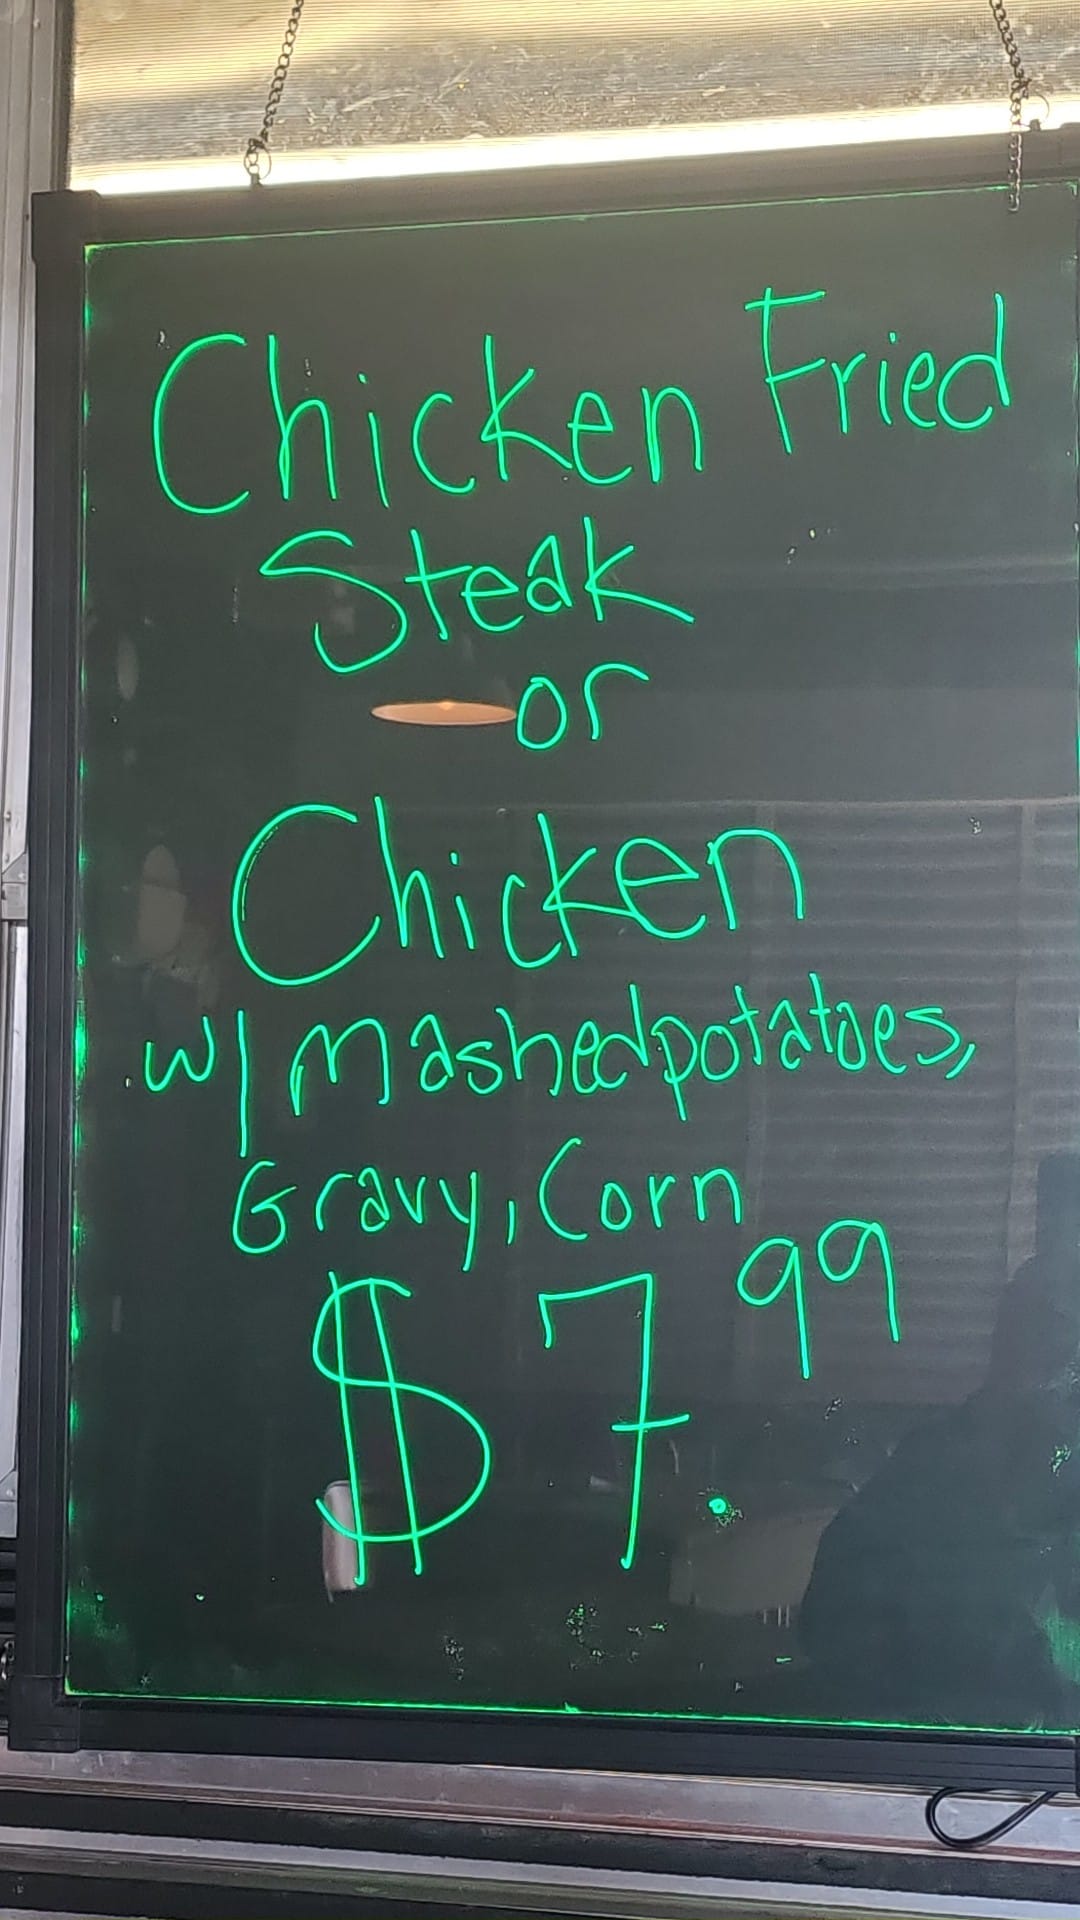 Chicken Fried
Steak
or
Chicken
w/ mashedpotatoes,
Gravy, Corn
$7.99